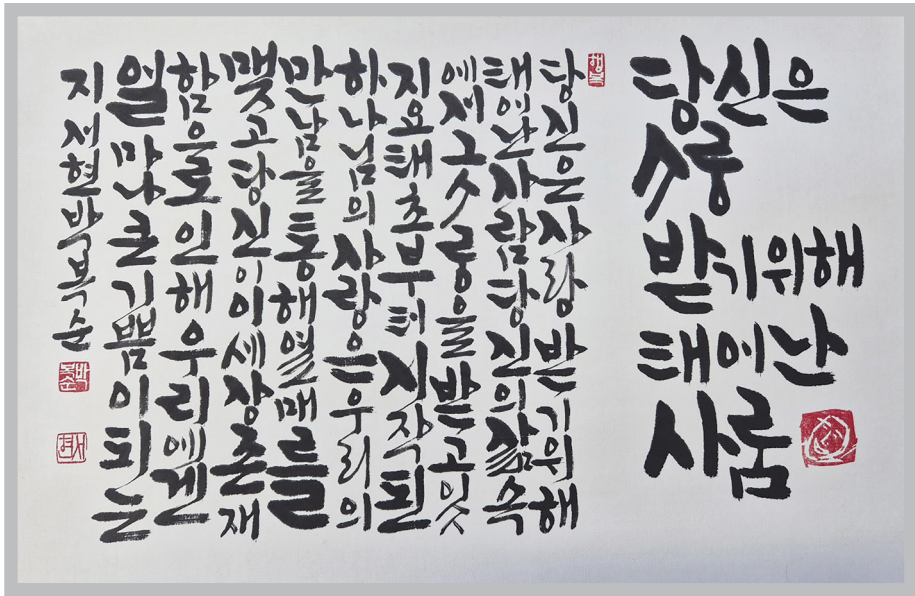 당신은
ᄉᆞᄅᆞᆼ
받기위해
태어난
사ᄅᆞᆷ
행복
당신은사랑받기위해
태어난사람당신의삶속
에서그ᄉᆞᄅᆞᆼ을받고잇
지요태초부터시작된
하나님의사랑은우리의
만남을통해열매를
맺고당신이이세상존재
함으로인해우리에겐
얼마나큰기쁨이되는
지 서현박복순
박복순
서현